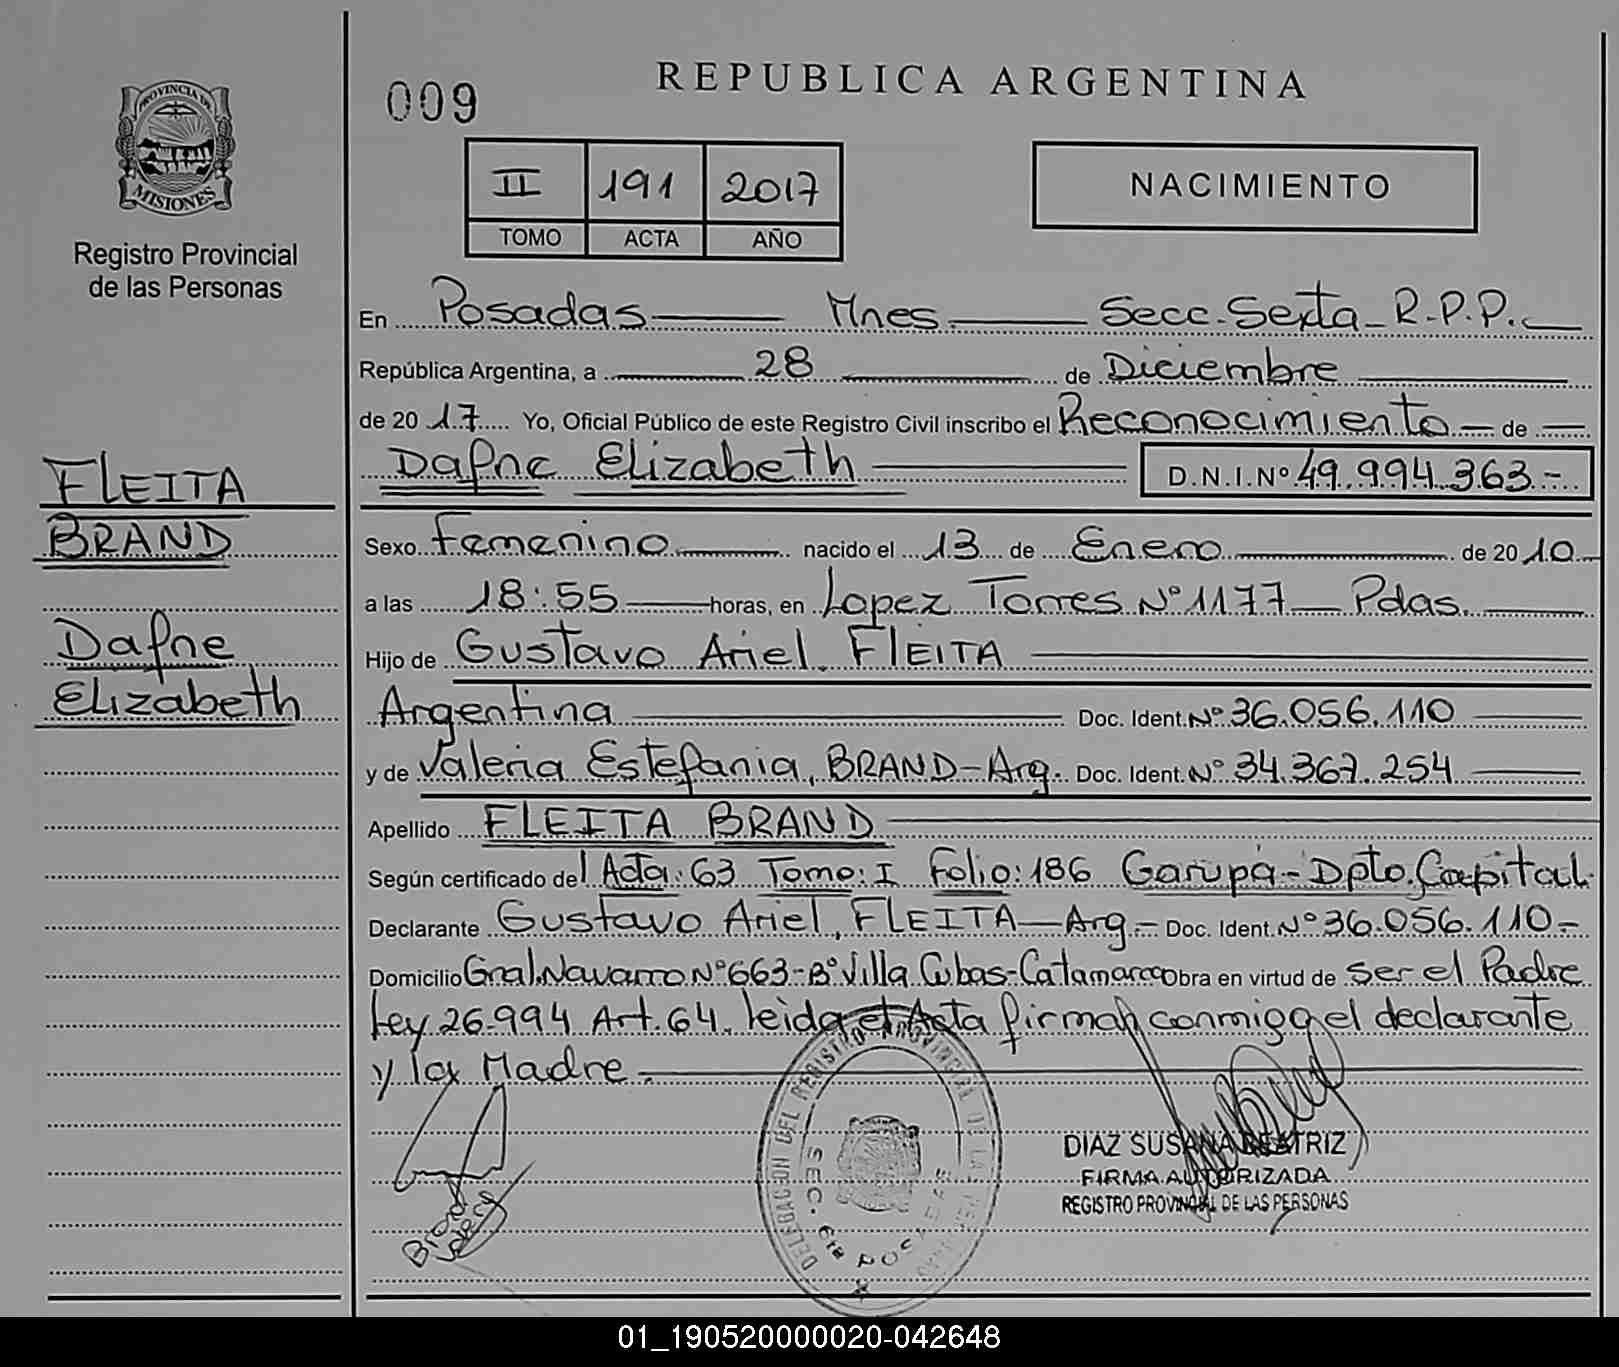 REPUBLICA ARGENTINA
009
PROVINCIA DE
MISIONES
Registro Provincial
de las Personas
II 191 2017
TOMO ACTA AÑO
NACIMIENTO
En Posadas Mnes. Secc. Sexta R.P.P.
República Argentina, a 28 de Diciembre
de 2017 Yo, Oficial Público de este Registro Civil inscribo el Reconocimiento de
Dafne Elizabeth D.N.I.Nº 49.994.363.-
FLEITA
BRAND
Dafne
Elizabeth
Sexo Femenino nacido el 13 de Enero de 2010
a las 18:55 horas, en Lopez Torres Nº 1177 Pdas.
Hijo de Gustavo Ariel, FLEITA
Argentina Doc. Ident. Nº 36.056.110
y de Valeria Estefania, BRAND-Arg. Doc. Ident. Nº 34.367.254
Apellido FLEITA BRAND
Según certificado del Acta: 63 Tomo: I Folio: 186 Garupa-Dpto. Capital.
Declarante Gustavo Ariel, FLEITA-Arg.- Doc. Ident. Nº 36.056.110-
Domicilio Gral. Navarro Nº 663-Bº Villa Cubas-Catamarca Obra en virtud de ser el Padre
Ley 26.994 Art. 64. leida el Acta firman conmigo el declarante
y la Madre.
DELEGACION DEL REGISTRO PROVINCIAL DE LAS PERSONAS
SEC. 6ta POSADAS
DIAZ SUSANA BEATRIZ
FIRMA AUTORIZADA
REGISTRO PROVINCIAL DE LAS PERSONAS
01_190520000020-042648